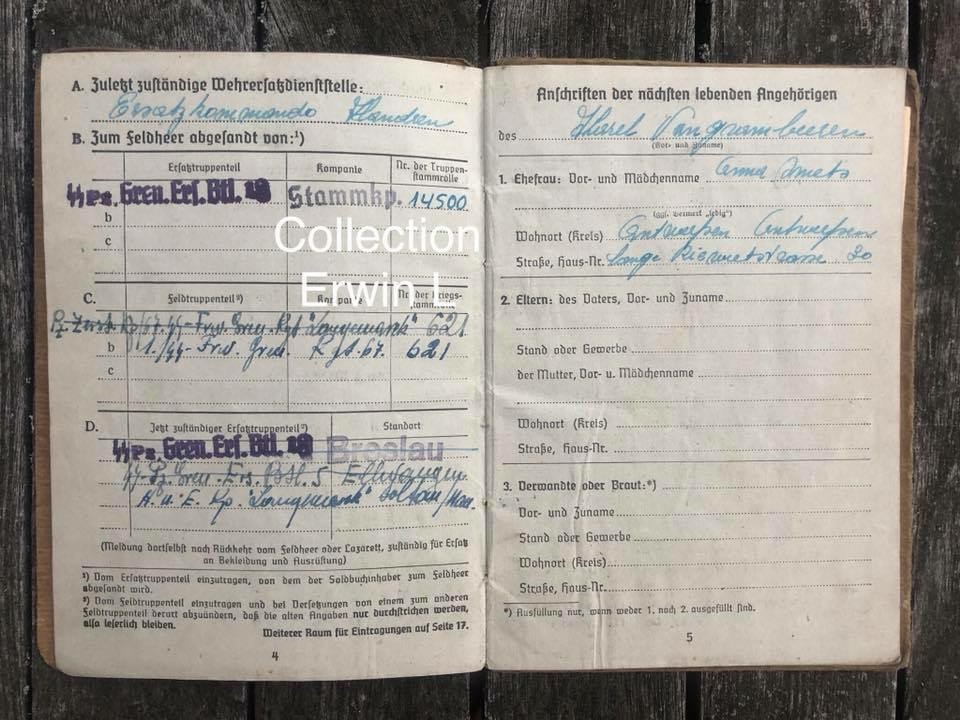 A. Zuletzt zuständige Wehrersatzdienststelle:
Ersatzkommando Flandern
B. Zum Feldheer abgesandt von:¹)
Ersatztruppenteil
Kompanie
Nr. der Truppenstammrolle
Gren. Ers. Btl.
Stammkp.
14500
b
c
Collection
Erwin L
C.
Feldtruppenteil²)
Kompanie
Nr. der Kriegsstammrolle
Frw. Gren. Rgt "Langemarck" 621
b
1./SS-Frw. Gren. Rgt. 67. 621
c
D.
Jetzt zuständiger Ersatztruppenteil²)
Standort
Gren. Ers. Btl.
Breslau
SS-Pz. Gren. Ers. Btl. 5 Ellwangen
A. u. E. Kp. "Langemarck" Soltau/Han.
(Meldung dortselbst nach Rückkehr vom Feldheer oder Lazarett, zuständig für Ersatz
an Bekleidung und Ausrüstung)
¹) Vom Ersatztruppenteil einzutragen, von dem der Soldbuchinhaber zum Feldheer
abgesandt wird.
²) Vom Feldtruppenteil einzutragen und bei Versetzungen von einem zum anderen
Feldtruppenteil derart abzuändern, daß die alten Angaben nur durchstrichen werden,
also leserlich bleiben.
Weiterer Raum für Eintragungen auf Seite 17.
4
Anschriften der nächsten lebenden Angehörigen
des Karel
(Vor- und Zuname)
1. Ehefrau: Vor- und Mädchenname Anna Smets
(ggf. Vermerk „ledig")
Wohnort (Kreis) Antwerpen Antwerpen
Straße, Haus-Nr. Lange 30
2. Eltern: des Vaters, Vor- und Zuname
Stand oder Gewerbe
der Mutter, Vor- u. Mädchenname
Wohnort (Kreis)
Straße, Haus-Nr.
3. Verwandte oder Braut:*)
Vor- und Zuname
Stand oder Gewerbe
Wohnort (Kreis)
Straße, Haus-Nr.
*) Ausfüllung nur, wenn weder 1. noch 2. ausgefüllt sind.
5